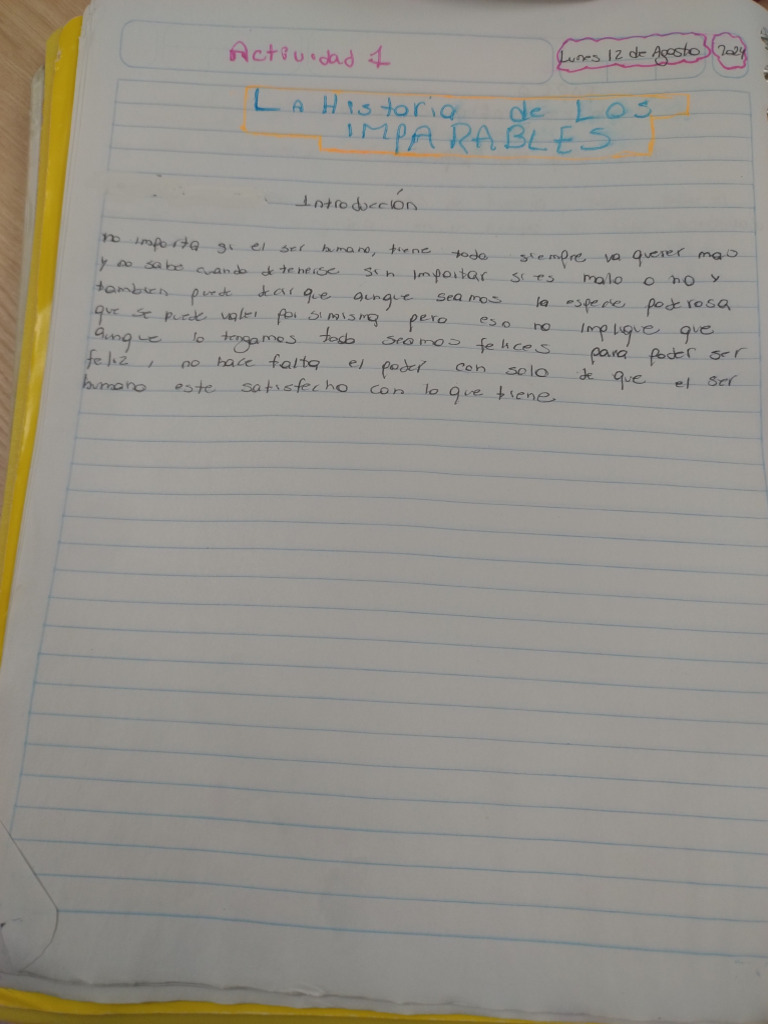 Actividad 1
Lunes 12 de Agosto 2024
La Historia de LOS
IMPARABLES
Introducción
no importa si el ser humano, tiene todo siempre va querer mas
y no sabe cuando detenerse sin importar si es malo o no y
tambien puede dar que aunque seamos la especie poderosa
que se puede valer por si misma pero eso no implique que
aunque lo tengamos todo seamos felices para poder ser
feliz, no hace falta el poder con solo de que el ser
humano este satisfecho con lo que tiene